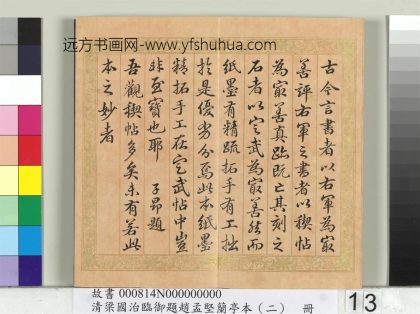 远方书画网-www.yfshuhua.com
古今言書者以右軍為㝡
善評右軍之書者以禊帖
為㝡善真跡既亡其刻之
石者以定武為㝡善然而
紙墨有精疏拓手有工拙
於是優劣分焉此本紙墨
精拓手工在定武帖中豈
非至寶也耶　子昂題
吾觀禊帖多矣未有若此
本之妙者
故書 000814N000000000
清梁國治臨御題趙孟堅蘭亭本（二）　冊
13